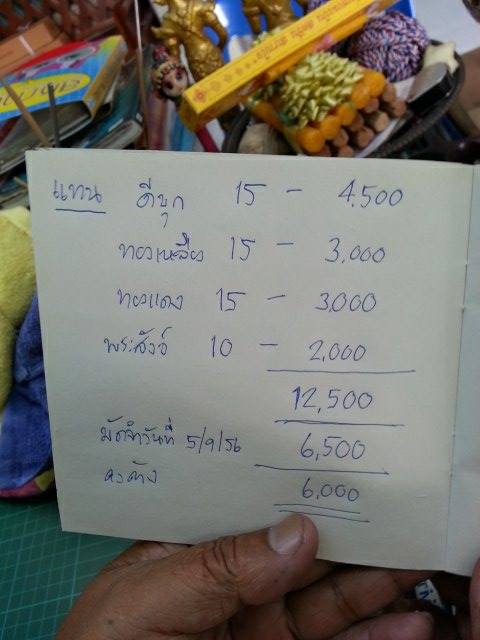 แทน ดีบุก 15 - 4,500
ทองเหลือง 15 - 3,000
ทองแดง 15 - 3,000
พระสังข์ 10 - 2,000
12,500
มัดจำวันที่ 5/9/56 6,500
คงค้าง 6,000